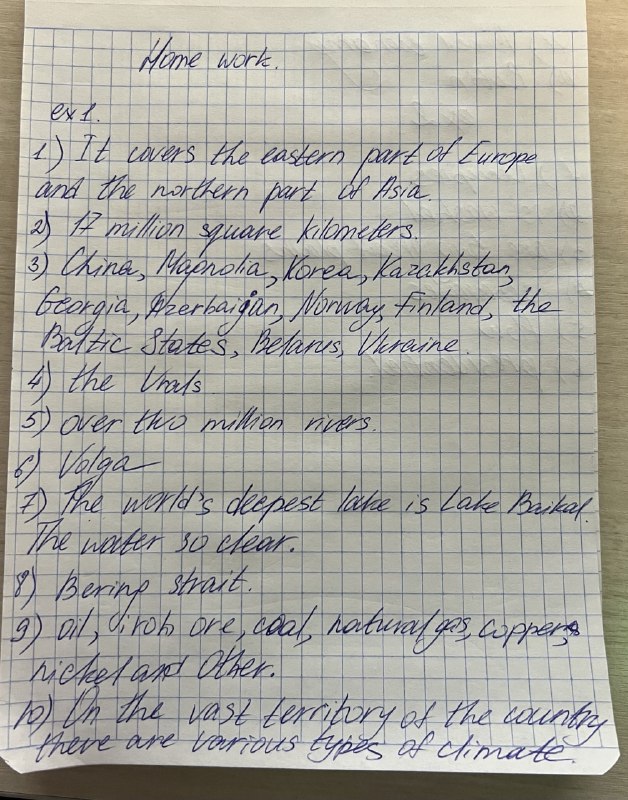 Home work.
ex 1.
1) It covers the eastern part of Europe
and the northern part of Asia.
2) 17 million square kilometers.
3) China, Magnolia, Korea, Kazakhstan,
Georgia, Azerbaijan, Norway, Finland, the
Baltic States, Belarus, Ukraine.
4) the Urals
5) over two million rivers.
6) Volga
7) The world's deepest lake is Lake Baikal.
The water so clear.
8) Bering strait.
9) oil, iron ore, coal, natural gas, copper,
nickel and Other.
10) On the vast territory of the country
there are various types of climate.